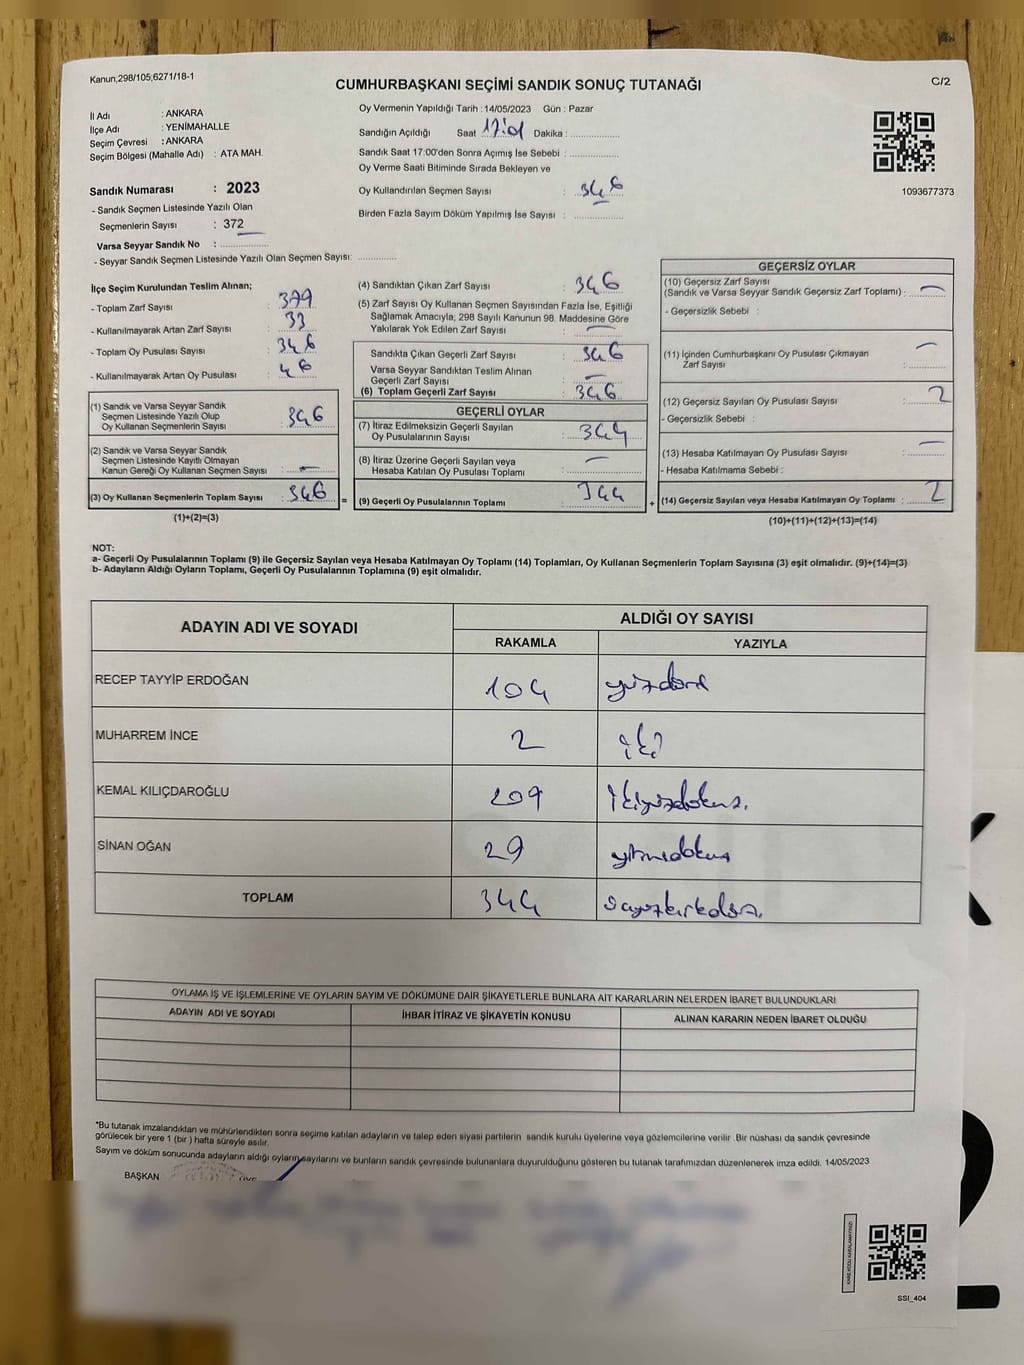 Kanun;298/105;6271/18-1
CUMHURBAŞKANI SEÇİMİ SANDIK SONUÇ TUTANAĞI
C/2
İl Adı : ANKARA
İlçe Adı : YENİMAHALLE
Seçim Çevresi : ANKARA
Seçim Bölgesi (Mahalle Adı) : ATA MAH.
Sandık Numarası : 2023
- Sandık Seçmen Listesinde Yazılı Olan
Seçmenlerin Sayısı : 372
Varsa Seyyar Sandık No : ..............
- Seyyar Sandık Seçmen Listesinde Yazılı Olan Seçmen Sayısı: ............
Oy Vermenin Yapıldığı Tarih :14/05/2023 Gün : Pazar
Sandığın Açıldığı Saat 17:01 Dakika : ..............
Sandık Saat 17:00'den Sonra Açımış İse Sebebi : ..............
Oy Verme Saati Bitiminde Sırada Bekleyen ve
Oy Kullandırılan Seçmen Sayısı : 346
Birden Fazla Sayım Döküm Yapılmış İse Sayısı : ..............
1093677373
İlçe Seçim Kurulundan Teslim Alınan;
- Toplam Zarf Sayısı : 379
- Kullanılmayarak Artan Zarf Sayısı : 33
- Toplam Oy Pusulası Sayısı : 346
- Kullanılmayarak Artan Oy Pusulası : 46
(1) Sandık ve Varsa Seyyar Sandık
Seçmen Listesinde Yazılı Olup
Oy Kullanan Seçmenlerin Sayısı : 346
(2) Sandık ve Varsa Seyyar Sandık
Seçmen Listesinde Kayıtlı Olmayan
Kanun Gereği Oy Kullanan Seçmen Sayısı : —
(3) Oy Kullanan Seçmenlerin Toplam Sayısı : 346 =
(1)+(2)=(3)
(4) Sandıktan Çıkan Zarf Sayısı : 346
(5) Zarf Sayısı Oy Kullanan Seçmen Sayısından Fazla İse, Eşitliği
Sağlamak Amacıyla; 298 Sayılı Kanunun 98. Maddesine Göre
Yakılarak Yok Edilen Zarf Sayısı : —
Sandıkta Çıkan Geçerli Zarf Sayısı : 346
Varsa Seyyar Sandıktan Teslim Alınan
Geçerli Zarf Sayısı : —
(6) Toplam Geçerli Zarf Sayısı : 346
GEÇERLİ OYLAR
(7) İtiraz Edilmeksizin Geçerli Sayılan
Oy Pusulalarının Sayısı : 344
(8) İtiraz Üzerine Geçerli Sayılan veya
Hesaba Katılan Oy Pusulası Toplamı : —
(9) Geçerli Oy Pusulalarının Toplamı : 344 +
GEÇERSİZ OYLAR
(10) Geçersiz Zarf Sayısı
(Sandık ve Varsa Seyyar Sandık Geçersiz Zarf Toplamı) : —
- Geçersizlik Sebebi :
(11) İçinden Cumhurbaşkanı Oy Pusulası Çıkmayan
Zarf Sayısı : —
(12) Geçersiz Sayılan Oy Pusulası Sayısı : 2
- Geçersizlik Sebebi :
(13) Hesaba Katılmayan Oy Pusulası Sayısı : —
- Hesaba Katılmama Sebebi :
(14) Geçersiz Sayılan veya Hesaba Katılmayan Oy Toplamı : 2
(10)+(11)+(12)+(13)=(14)
NOT:
a- Geçerli Oy Pusulalarının Toplamı (9) ile Geçersiz Sayılan veya Hesaba Katılmayan Oy Toplamı (14) Toplamları, Oy Kullanan Seçmenlerin Toplam Sayısına (3) eşit olmalıdır. (9)+(14)=(3)
b- Adayların Aldığı Oyların Toplamı, Geçerli Oy Pusulalarının Toplamına (9) eşit olmalıdır.
ADAYIN ADI VE SOYADI
ALDIĞI OY SAYISI
RAKAMLA YAZIYLA
RECEP TAYYİP ERDOĞAN 104 yüzdört
MUHARREM İNCE 2 iki
KEMAL KILIÇDAROĞLU 209 ikiyüzdokuz.
SİNAN OĞAN 29 yirmidokuz
TOPLAM 344
OYLAMA İŞ VE İŞLEMLERİNE VE OYLARIN SAYIM VE DÖKÜMÜNE DAİR ŞİKAYETLERLE BUNLARA AİT KARARLARIN NELERDEN İBARET BULUNDUKLARI
ADAYIN ADI VE SOYADI İHBAR İTİRAZ VE ŞİKAYETİN KONUSU ALINAN KARARIN NEDEN İBARET OLDUĞU
*Bu tutanak imzalandıktan ve mühürlendikten sonra seçime katılan adayların ve talep eden siyasi partilerin sandık kurulu üyelerine veya gözlemcilerine verilir .Bir nüshası da sandık çevresinde
görülecek bir yere 1 (bir ) hafta süreyle asılır.
Sayım ve döküm sonucunda adayların aldığı oyların sayılarını ve bunların sandık çevresinde bulunanlara duyurulduğunu gösteren bu tutanak tarafımızdan düzenlenerek imza edildi. 14/05/2023
BAŞKAN ÜYE
SSI_404